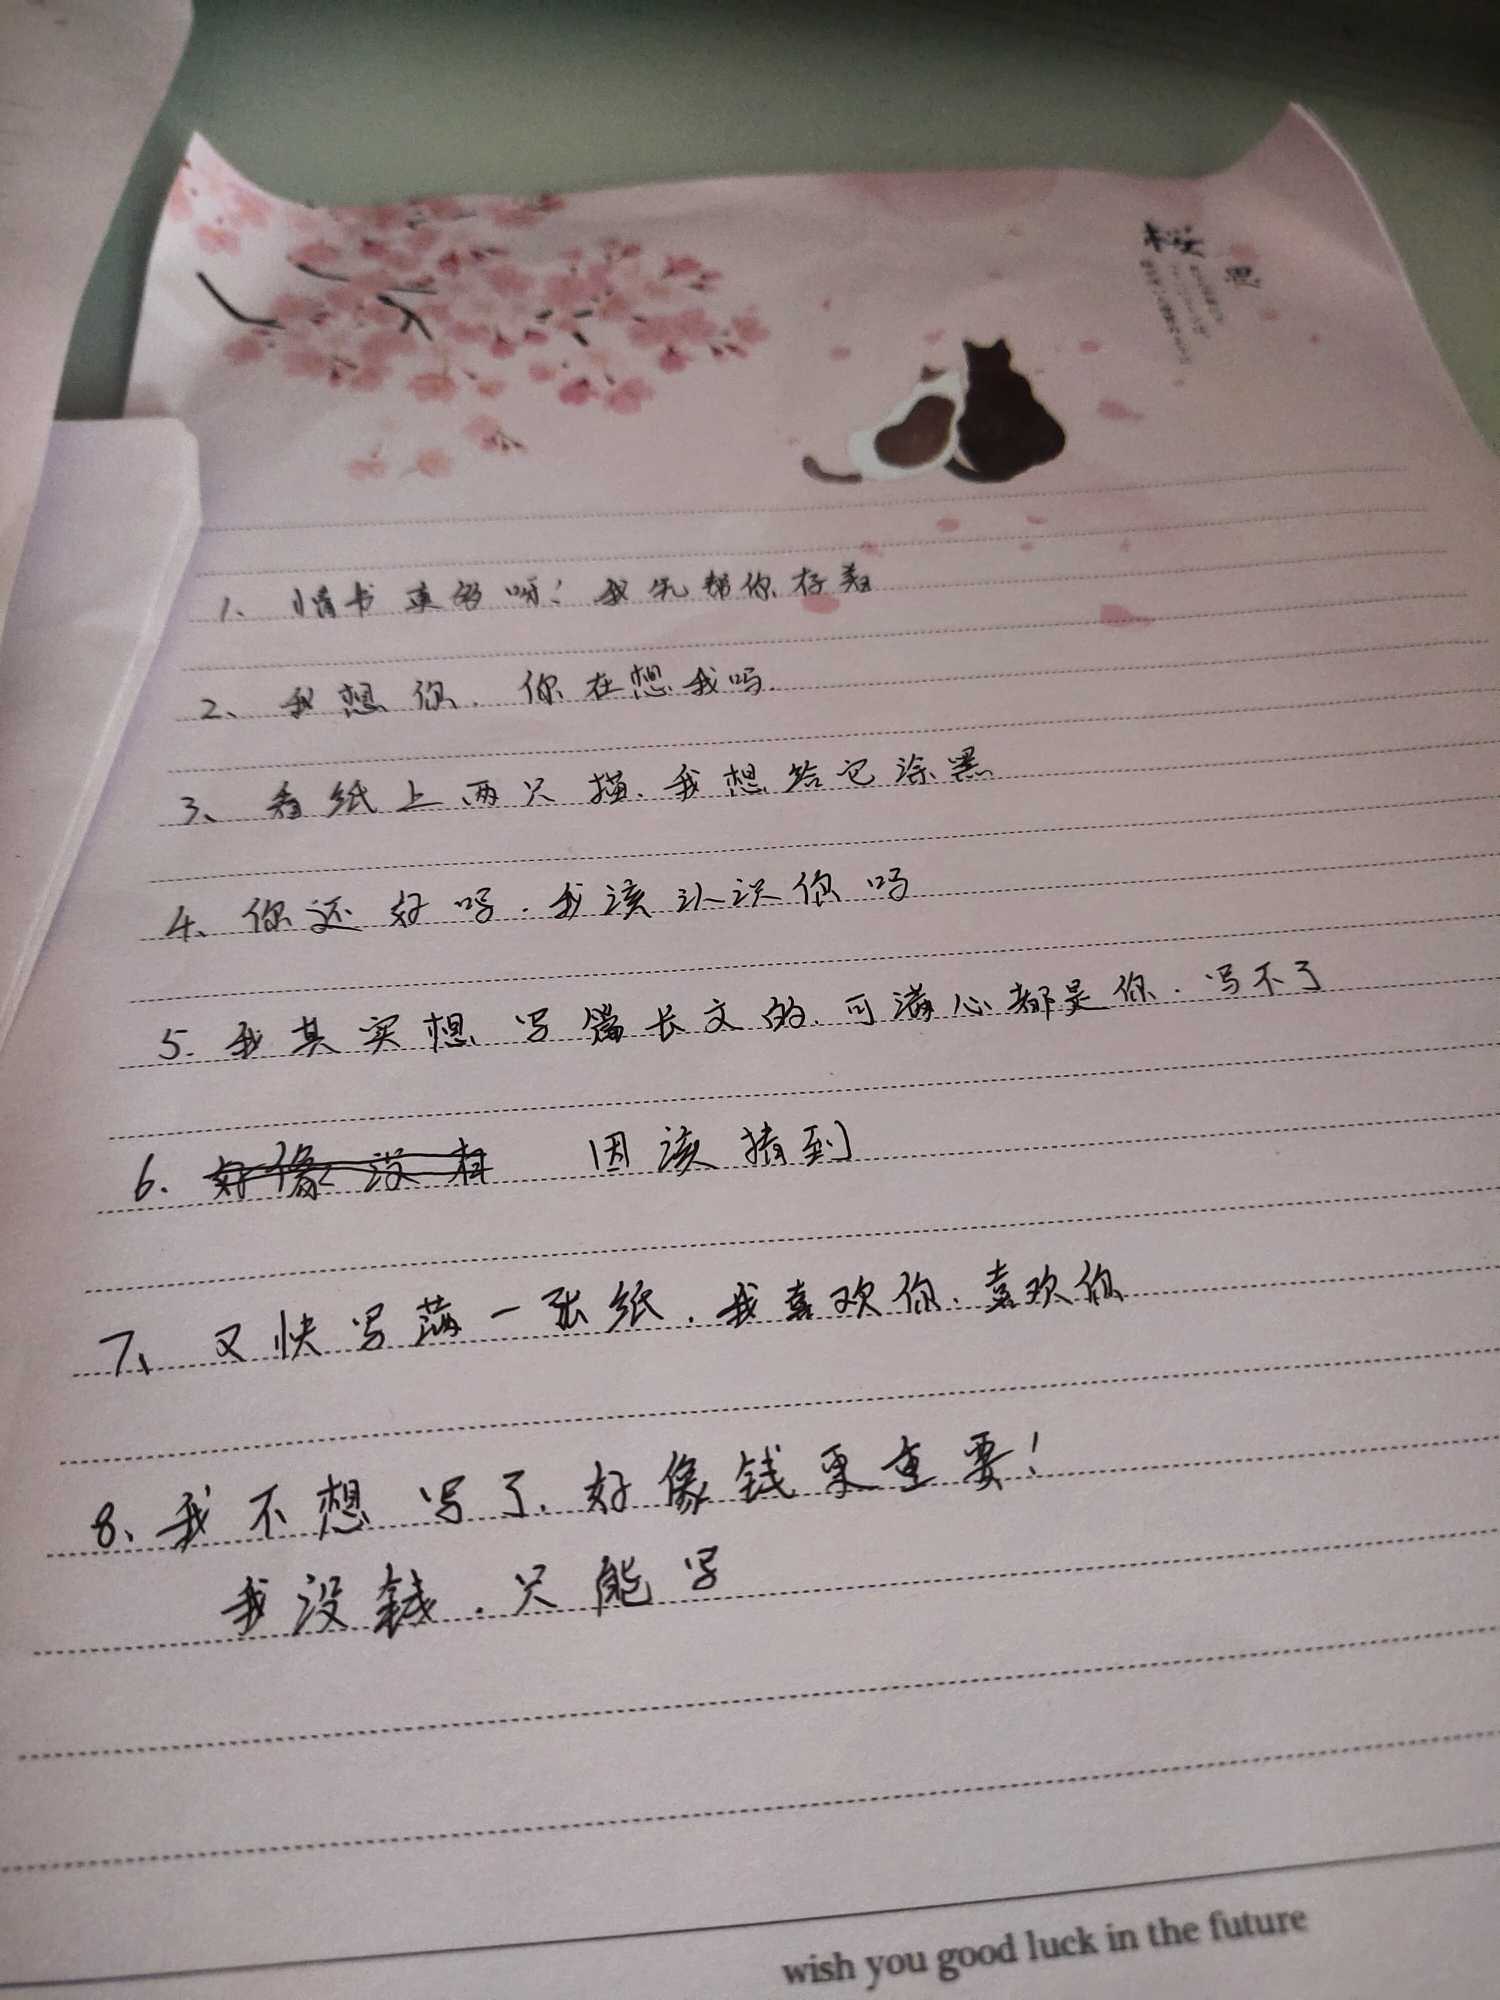 1、情书真多呀！我先帮你存着
2、我想你．你在想我吗．
3、看纸上两只描、我想给它涂黑
4、你还好吗．我该认识你吗
5.我其实想写篇长文的．可满心都是你．写不了
6.好像没有 因该猜到
7、又快写满一张纸．我喜欢你、喜欢你
8、我不想写了．好像钱更重要！
我没錢．只能写
wish you good luck in the future